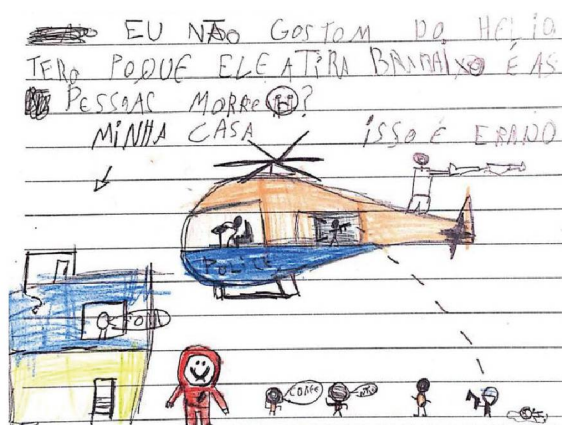 EU NÃO GOSTOM DO HELIO
TERO POQUE ELE ATIRA BARAIXO É AS
PESSOAS MORRE
MINHA CASA
ISSO É ERADO
POLICE
CORRE
NÃO